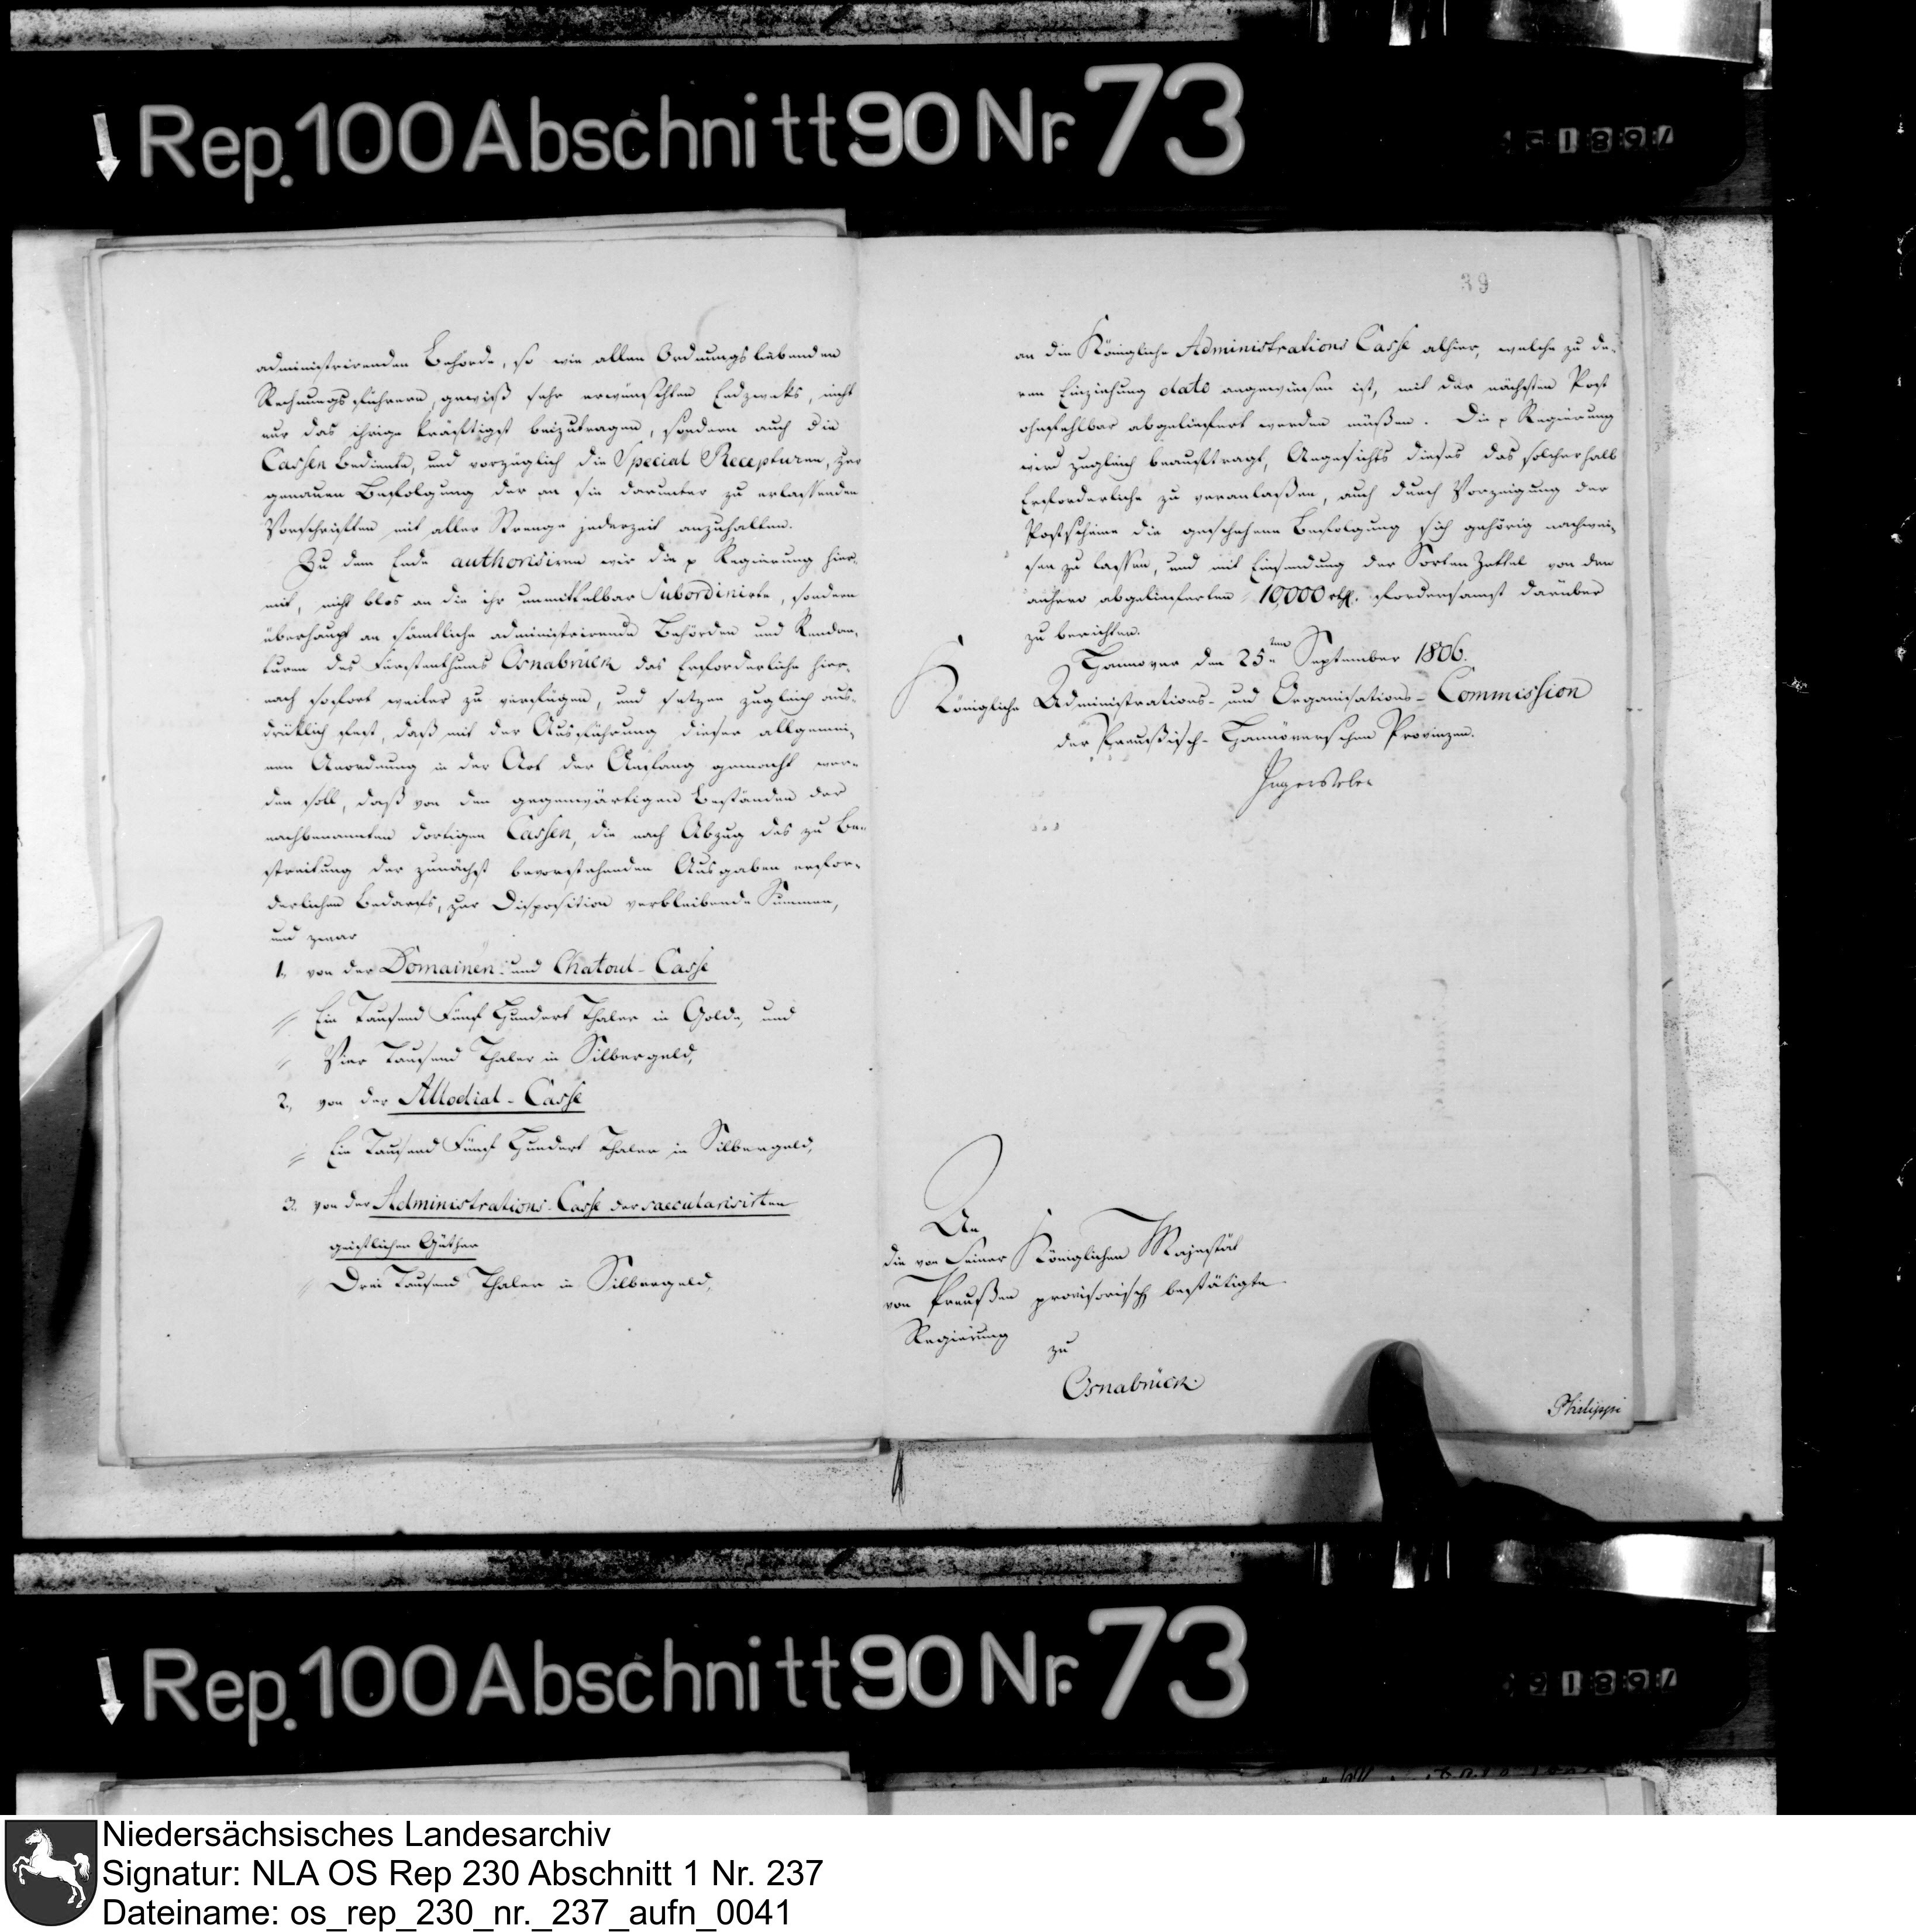 Rep. 100 Abschnitt 90 Nr. 73
1897
39
administrirenden Behörde, so wie allen Ordnungsliebenden
Rechnungsführern, gewiß sehr erwünschten Endzweks, nicht
nur das ihrige kräftigst beizutragen, sondern auch die
Cassen Bediente, und vorzüglich die Special Recepturen, zur
genauen Befolgung der an sie darunter zu erlassenden
Vorschriften mit aller Strenge jederzeit anzuhalten.
Zu dem Ende authorisiren wir die p Regierung hier-
mit, nicht blos an die ihr unmittelbar Subordinirte, sondern
überhaupt an sämtliche administrirende Behörden und Rendan-
turen des Fürstenthums Osnabrück das Erforderliche hier-
nach sofort weiter zu verfügen, und setzen zugleich aus-
drüklich fest, daß mit der Ausführung dieser allgemei-
nen Anordnung in der Art der Anfang gemacht wer-
den soll, daß von den gegenwärtigen Beständen der
nachbenannten dortigen Cassen, die nach Abzug des zu Be-
streitung der zunächst bevorstehenden Ausgaben erfor-
derlichen Bedarfs, zur Disposition verbleibende Summen,
und zwar
1., von der Domainen- und Chatoul-Casse
Ein Tausend Fünf Hundert Thaler in Golde, und
Vier Tausend Thaler in Silbergeld,
2., von der Allodial-Casse
Ein Tausend Fünf Hundert Thaler in Silbergeld,
3., von der Administrations-Casse der saecularisirten
geistlichen Güther
Drei Tausend Thaler in Silbergeld,
an die Königliche Administrations Casse alhier, welche zu de-
ren Einziehung dato angewiesen ist, mit der nächsten Post
ohnfehlbar abgeliefert werden müßen. Die p Regierung
wird zugleich beauftragt, Angesichts dieses das solcherhalb
Erforderliche zu veranlaßen, auch durch Vorzeigung der
Postscheine die geschehene Befolgung sich gehörig nachwei-
sen zu lassen, und mit Einsendung der Sorten Zettel von den
anhero abgelieferten 10,000 rthl. fordersamst darüber
zu berichten.
Hannover den 25ten September 1806.
Königliche Administrations- und Organisations-Commission
der Preußisch-Hannöverschen Provinzen.
Ingersleben
An
die von Seiner Königlichen Majestät
von Preußen provisorisch bestätigte
Regierung
zu
Osnabrück.
Philippi
Rep. 100 Abschnitt 90 Nr. 73
91897
Niedersächsisches Landesarchiv
Signatur: NLA OS Rep 230 Abschnitt 1 Nr. 237
Dateiname: os_rep_230_nr._237_aufn_0041